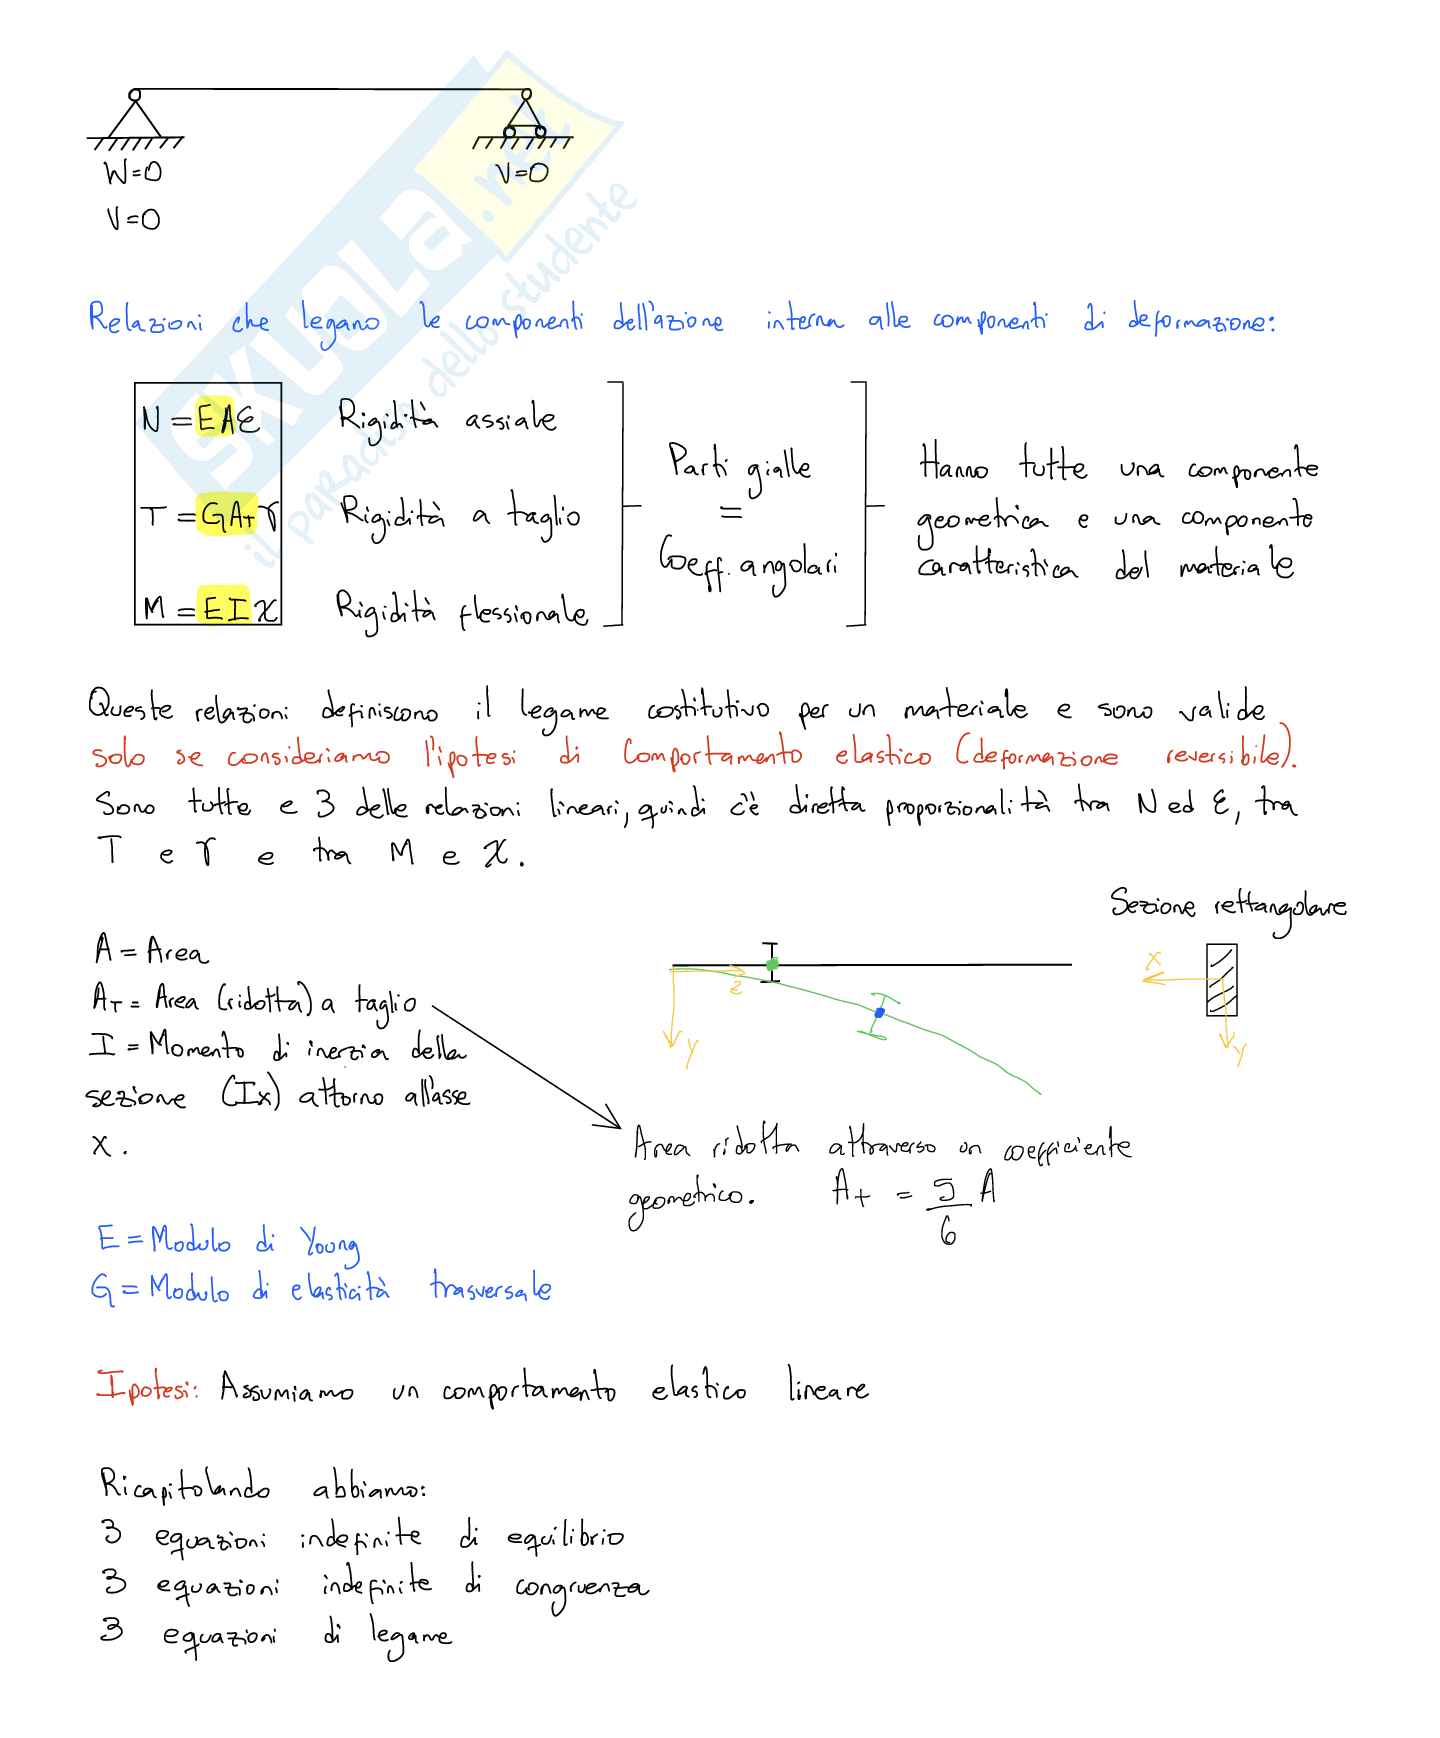 W=0
V=0
V=0
SKUOLA.net
il paradiso dello studente
Relazioni che legano le componenti dell'azione interna alle componenti di deformazione:
N = EAε
Rigidità assiale
T = GA_T γ
Rigidità a taglio
M = EIχ
Rigidità flessionale
Parti gialle
=
Coeff. angolari
Hanno tutte una componente
geometrica e una componente
caratteristica del materiale
Queste relazioni definiscono il legame costitutivo per un materiale e sono valide
solo se consideriamo l'ipotesi di Comportamento elastico (deformazione reversibile).
Sono tutte e 3 delle relazioni lineari, quindi c'è diretta proporzionalità tra N ed ε, tra
T e γ e tra M e χ.
A = Area
A_T = Area (ridotta) a taglio
I = Momento di inerzia della
sezione (Ix) attorno all'asse
x.
z
y
Sezione rettangolare
x
y
Area ridotta attraverso un coefficiente
geometrico. A_t = 5/6 A
E = Modulo di Young
G = Modulo di elasticità trasversale
Ipotesi: Assumiamo un comportamento elastico lineare
Ricapitolando abbiamo:
3 equazioni indefinite di equilibrio
3 equazioni indefinite di congruenza
3 equazioni di legame